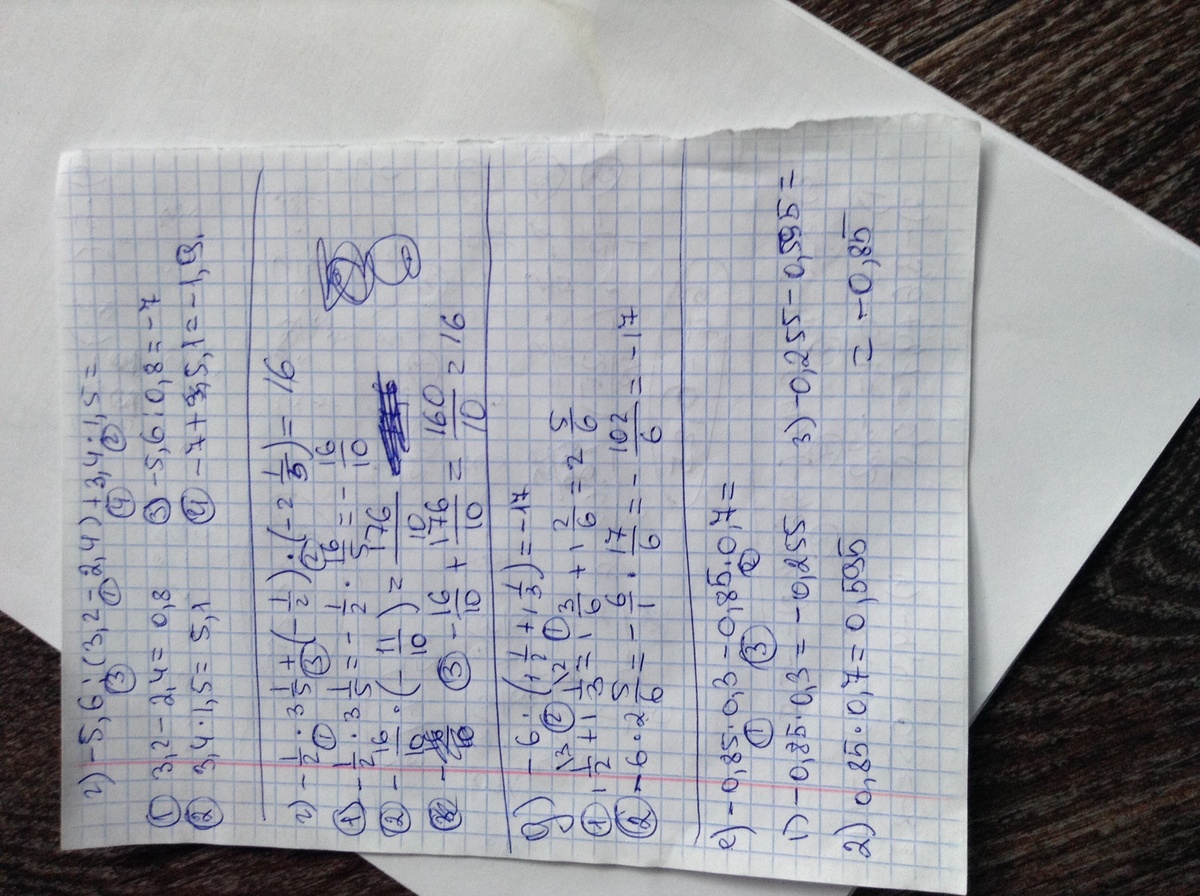 г) -5,6 : (3,2 - 2,4) + 3,4 · 1,5 =
③ ① ④ ②
① 3,2 - 2,4 = 0,8 ③ -5,6 : 0,8 = -7
② 3,4 · 1,5 = 5,1 ④ -7 + 5,1 = -1,9.
г) - 1/2 · 3 1/5 + (- 1/2) · (-2 1/5) = 16
① ③ ②
① - 1/2 · 3 1/5 = - 1/2 · 16/5 = - 16/10
② - 16/10 · (- 11/10) = 176/10
③ - 16/10 + 176/10 = 160/10 = 16
д) - 6 · (1 1/2 + 1 1/3) = -17
② ①
① 1 1/2 \3 + 1 1/3 \2 = 1 3/6 + 1 2/6 = 2 5/6
② - 6 · 2 5/6 = - 6/1 · 17/6 = - 102/6 = -17
е) -0,85 · 0,3 - 0,85 · 0,7 =
① ③ ②
1) -0,85 · 0,3 = -0,255 3) -0,255 - 0,595 =
2) 0,85 · 0,7 = 0,595 = -0,85